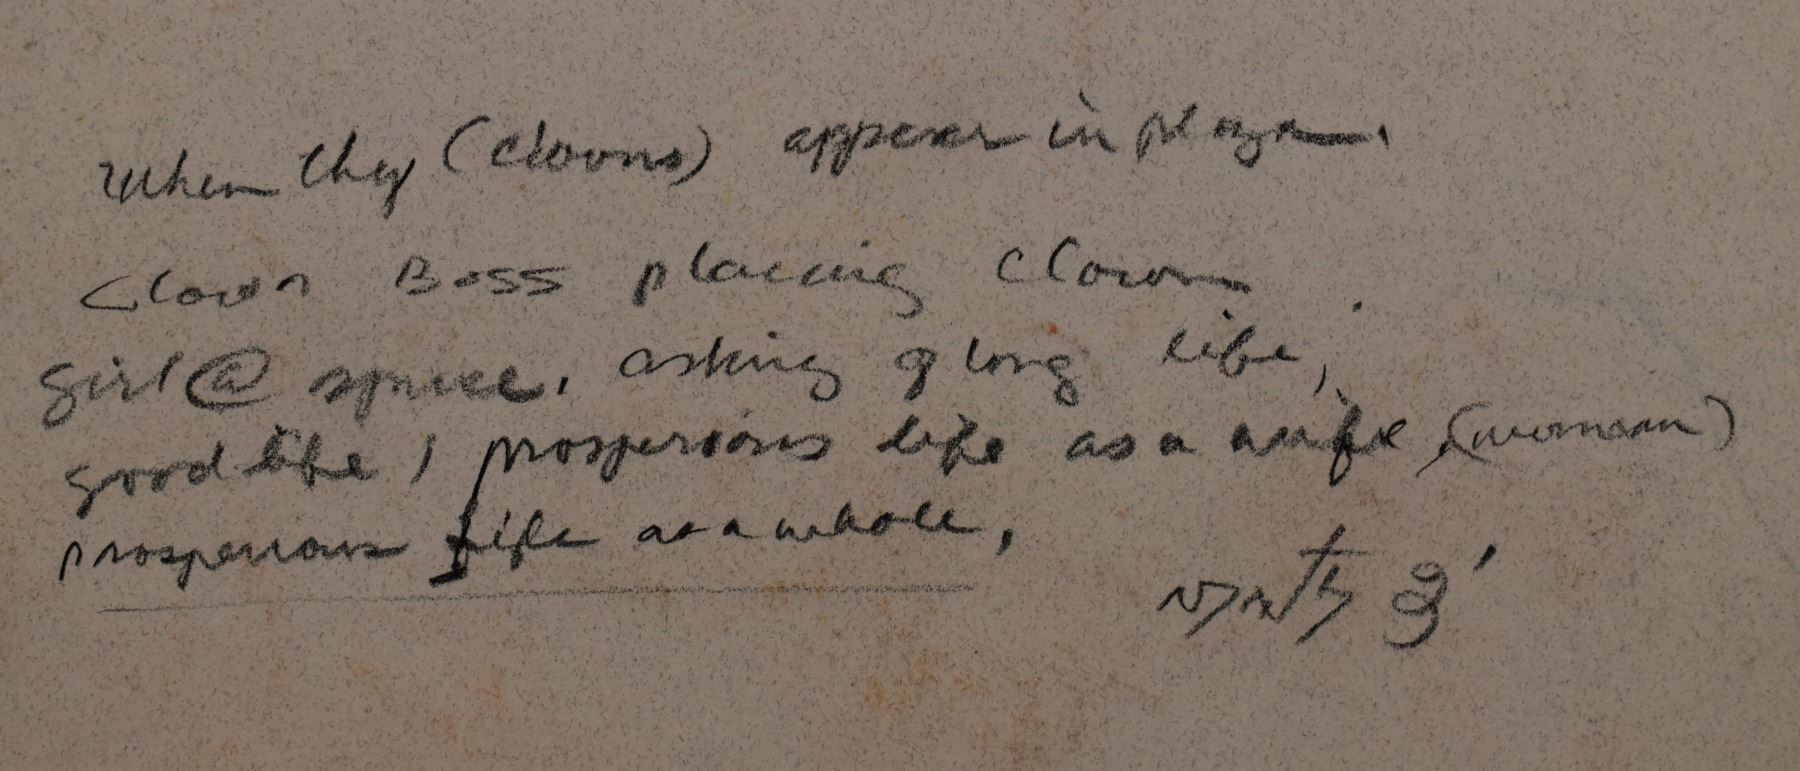 When they (clowns) appear in plaza.
Clown Boss placing clown
girl @ spruce, asking of long life,
good life, prosperious life as a wife, (woman)
prosperious life as a whole,